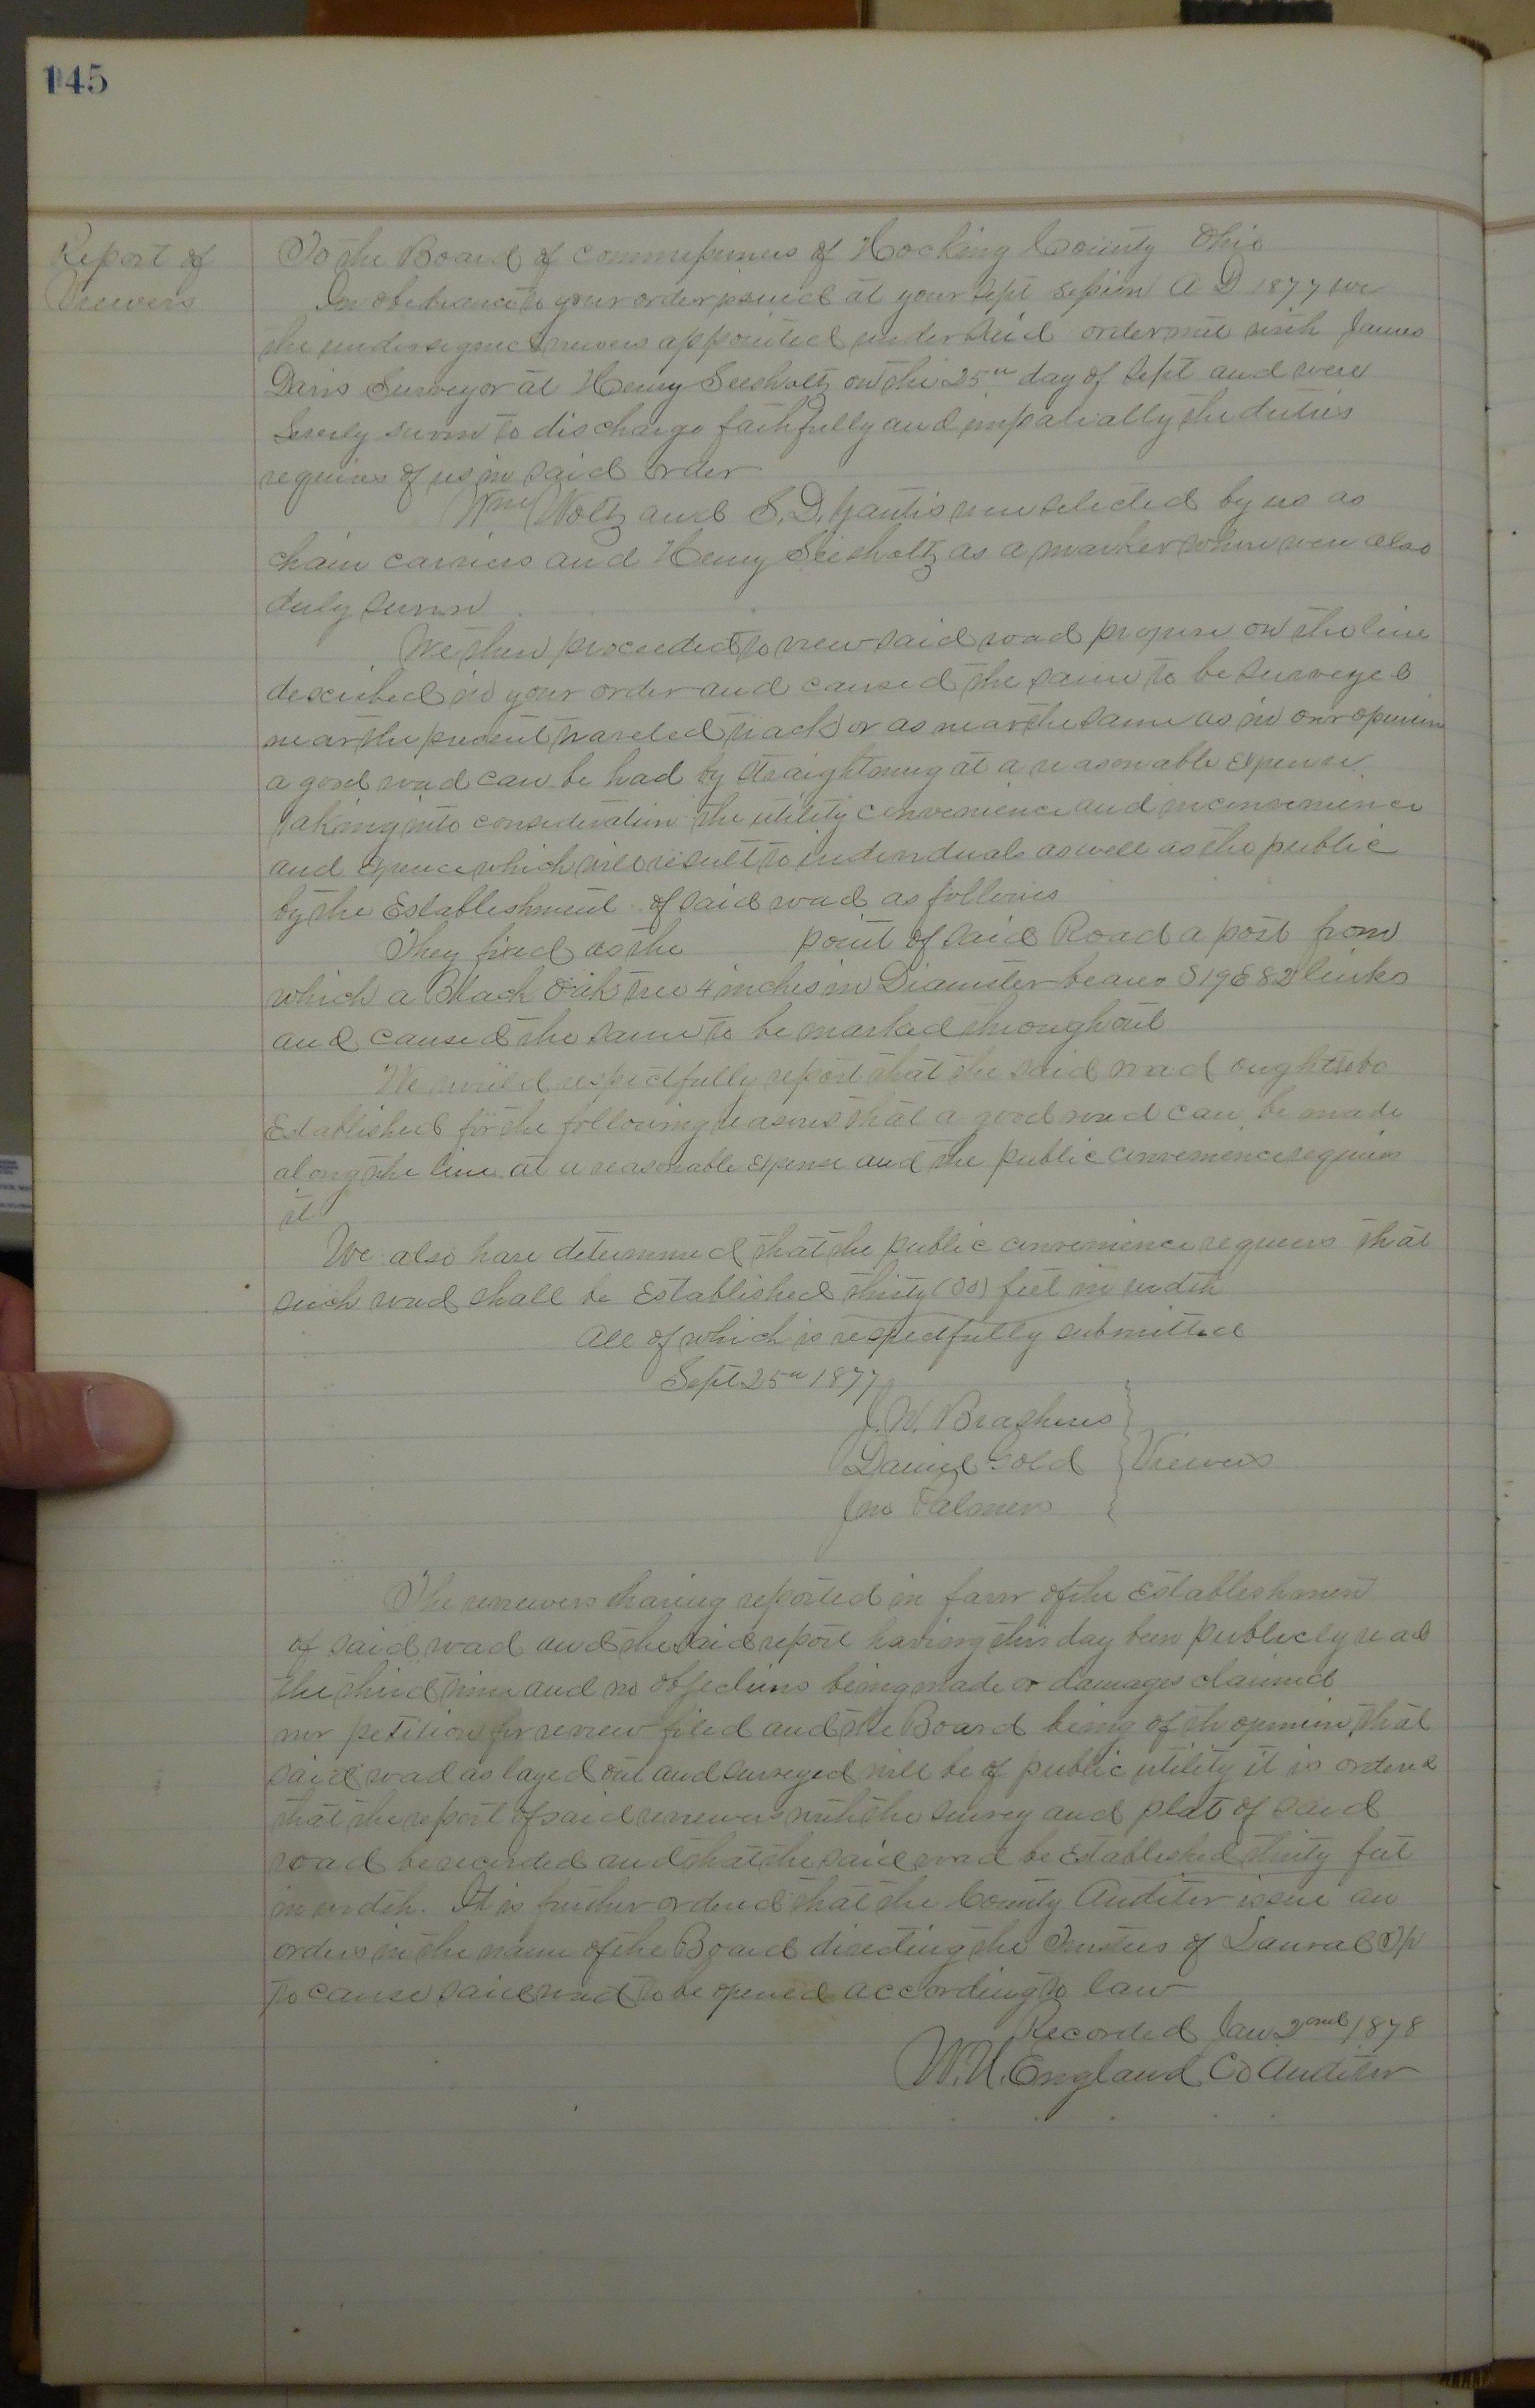 145
Report of
Viewers
To the Board of Commissioners of Hocking County Ohio
In obediance to your order issued at your Sept Session A D 1877 we
the undersigned viewers appointed under said order met with James
Davis Surveyor at Henry Seesholtz on the 25th day of Sept and were
severly sworn to discharge faithfully and impatially the duties
requires of us in said order
Wm Woltz and S. D. Gantis were selected by us as
chain carriers and Henry Seesholtz as a marker whom were also
duly sworn
We then proceeded to view said road propose on the line
described in your order and caused the same to be surveyed
near the present traveled track or as near the same as in our opinion
a good road can be had by straightning at a reasonable Expense
taking into consideration the utility convenience and inconvenience
and Expence which will result to individuals as well as the public
by the Establishment of said road as follows
They fixed as the point of said Road a post from
which a Black Oak tree 4 inches in Diameter bears S 19 E 82 links
and caused the same to be marked throughout
We would respectfully report that the said road ought to be
Established for the following reasons that a good road can be made
along the line at a reasonable Expense and the public convenience requires
it
We also have determined that the public convenience requires that
such road shall be Established thirty (30) feet in width
All of which is respectfully submitted
Sept 25th 1877
J. W. Brashares
Daniel Gold Viewers
Jno Palmer
The viewers having reported in favor of the Establishment
of said road and the said report having this day been publicly read
the third time and no objections being made or damages claimed
nor petition for review filed and the Board being of the opinion that
said road as layed out and surveyed will be of public utility it is ordered
that the report of said viewers with the survey and plat of said
road be recorded and that the said road be Established thirty feet
in width. It is further ordered that the County Auditor issue an
orders in the name of the Board directing the Trustees of Laural Tp
to cause said road to be opened according to law
Recorded Jan 2ond 1878
W. H. England Co Auditor